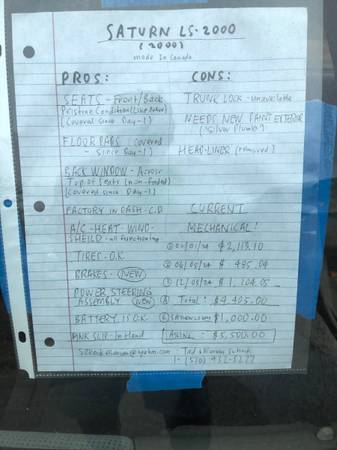 SATURN LS-2000
(2000)
made In Canada
PROS:
SEATS - Front/Back
Pristine Condition (Like New)
(Covered Since Day-1)
FLOOR PADS (Covered
- Since Day-1)
BACK WINDOW - Across
Top of Seats (non-faded)
(Covered since Day-1)
FACTORY IN DASH - C.D
A/C - HEAT - WIND-
SHEILD - all functioning
TIRES - O.K
BRAKES - (NEW)
POWER STEERING
ASSEMBLY (NEW)
BATTERY IS O.K
PINK SLIP - In Hand
CONS:
TRUNK LOCK - Unavailable
NEEDS NEW PAINT EXTERIOR
(Silver Plumb)
HEAD-LINER (removed)
CURRENT
MECHANICAL:
① $ 2,113.10
② 06/05/24 $
③ 12/03/24 $ 1,104.05
④ Total: $ 4,405.00
⑤ $1,000.00
ASKING: $ 5,500.00